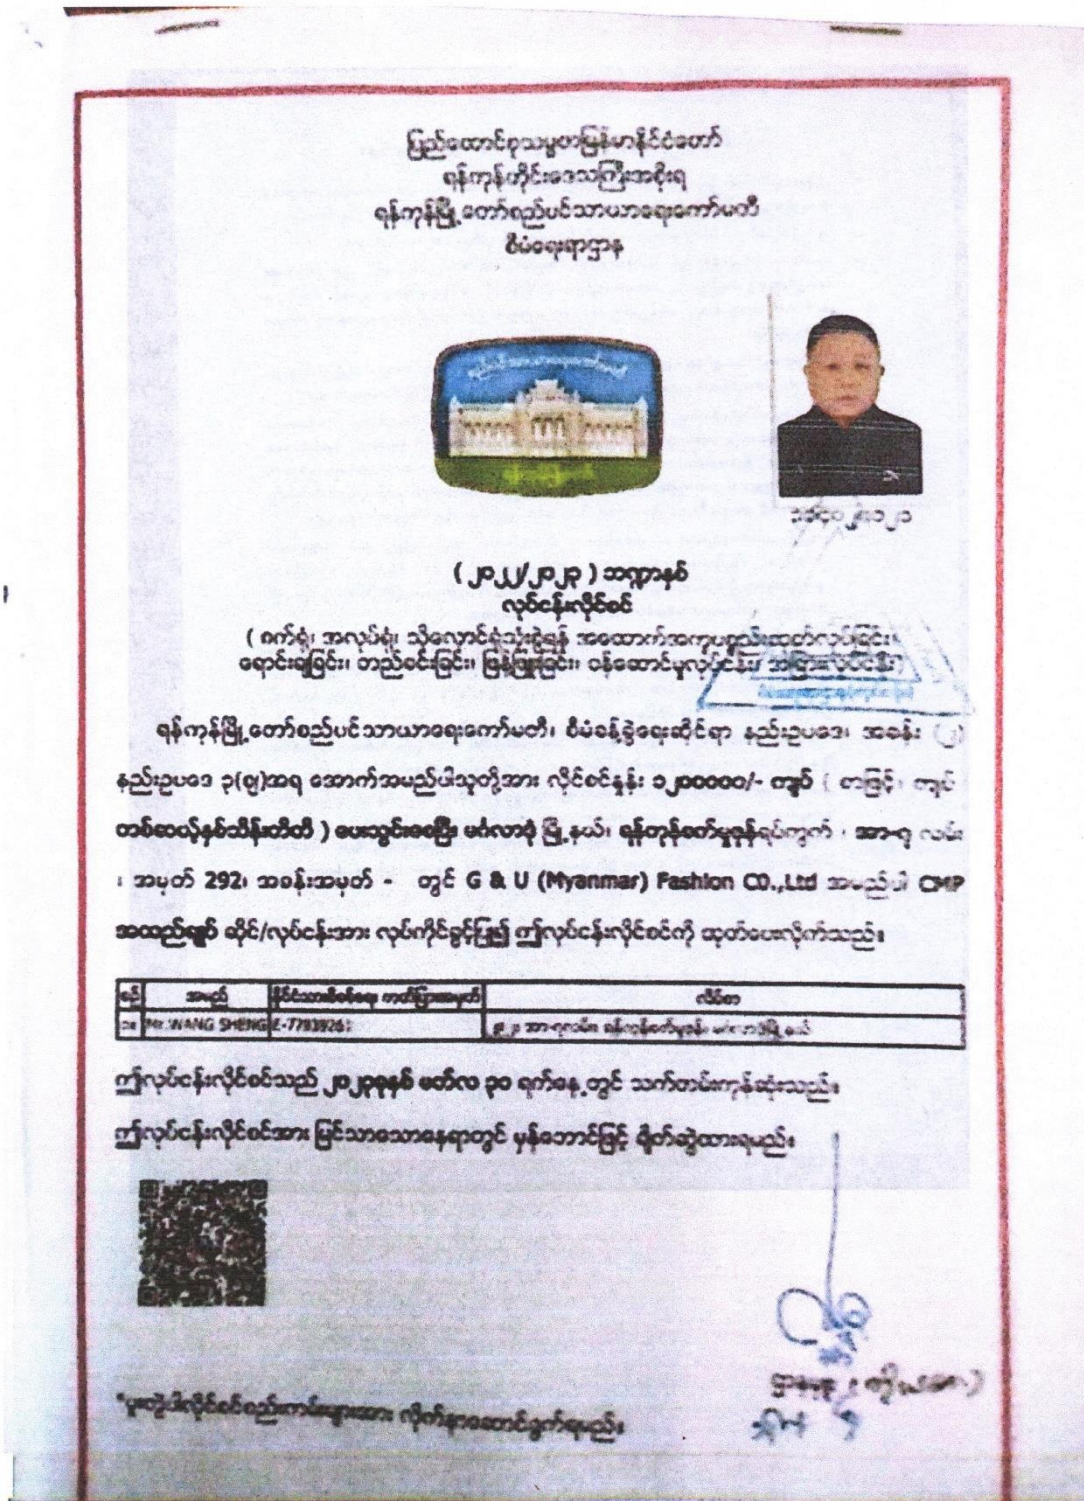 ပြည်ထောင်စုသမ္မတမြန်မာနိုင်ငံတော်
ရန်ကုန်တိုင်းဒေသကြီးအစိုးရ
ရန်ကုန်မြို့တော်စည်ပင်သာယာရေးကော်မတီ
စီမံရေးရာဌာန
( ၂၀၂၂/၂၀၂၃ ) ဘဏ္ဍာနှစ်
လုပ်ငန်းလိုင်စင်
( စက်ရုံ၊ အလုပ်ရုံ၊ သိုလှောင်ရုံသုံးစွဲရန် အထောက်အကူပစ္စည်းထုတ်လုပ်ခြင်း၊
ရောင်းချခြင်း၊ တည်ခင်းခြင်း၊ ဖြန့်ဖြူးခြင်း၊ ဝန်ဆောင်မှုလုပ်ငန်း၊ အခြားလုပ်ငန်း)
ရန်ကုန်မြို့တော်စည်ပင်သာယာရေးကော်မတီ၊ စီမံခန့်ခွဲရေးဆိုင်ရာ နည်းဥပဒေ၊ အခန်း (၂)
နည်းဥပဒေ ၃(စျ)အရ အောက်အမည်ပါသူတို့အား လိုင်စင်နှုန်း ၁၂၀၀၀၀၀/- ကျပ် ( စာဖြင့်၊ ကျပ်
တစ်ဆယ့်နှစ်သိန်းတိတိ ) ပေးသွင်းစေပြီး မင်္ဂလာဒုံ မြို့နယ်၊ ရန်ကုန်စက်မှုဇုန်ရပ်ကွက် ၊ အာ-၇ လမ်း
၊ အမှတ် 292၊ အခန်းအမှတ် - တွင် G & U (Myanmar) Fashion CO.,Ltd အမည်ပါ CMP
အထည်ချုပ် ဆိုင်/လုပ်ငန်းအား လုပ်ကိုင်ခွင့်ပြု၍ ဤလုပ်ငန်းလိုင်စင်ကို ထုတ်ပေးလိုက်သည်။
စဉ် အမည် နိုင်ငံသားစိစစ်ရေး ကတ်ပြားအမှတ် လိပ်စာ
၁။ Mr.WANG SHENG ၂၉၂၊ အာ-၇လမ်း၊ ရန်ကုန်စက်မှုဇုန်၊ မင်္ဂလာဒုံမြို့နယ်
ဤလုပ်ငန်းလိုင်စင်သည် ၂၀၂၃ခုနှစ် မတ်လ ၃၁ ရက်နေ့တွင် သက်တမ်းကုန်ဆုံးသည်။
ဤလုပ်ငန်းလိုင်စင်အား မြင်သာသောနေရာတွင် မှန်ဘောင်ဖြင့် ချိတ်ဆွဲထားရမည်။
*ပူးတွဲပါလိုင်စင်စည်းကမ်းများအား လိုက်နာဆောင်ရွက်ရမည်။